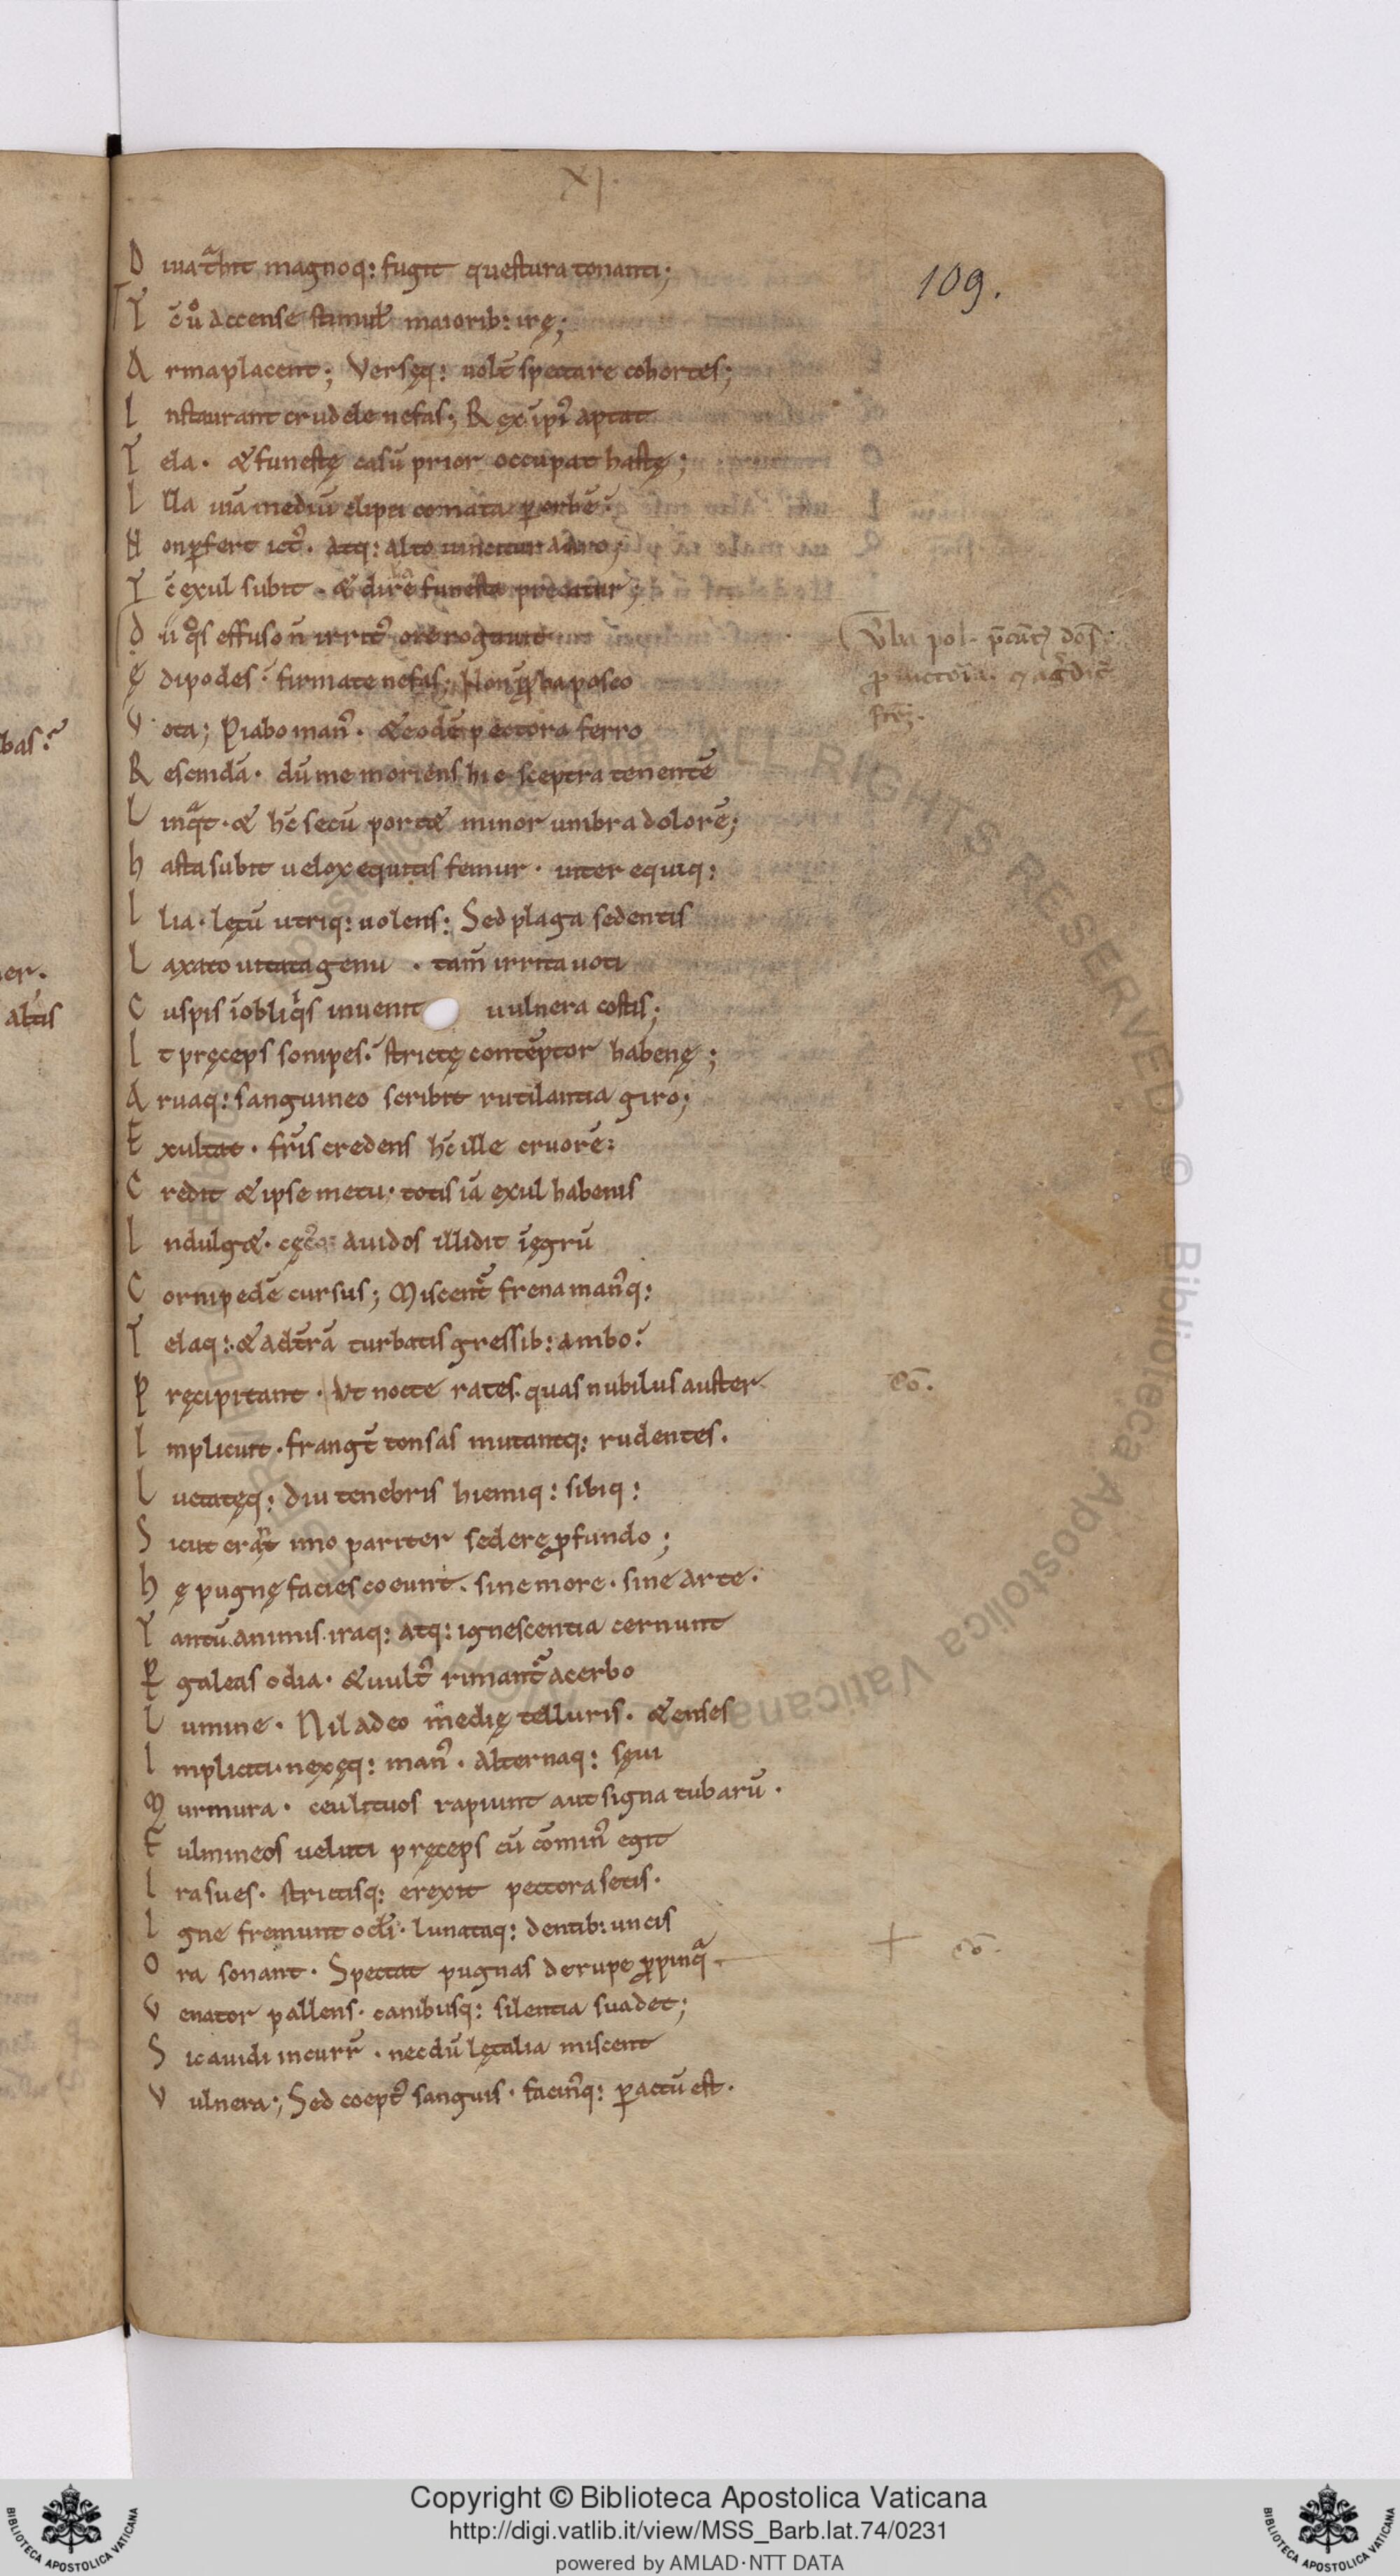 XI.
109.
D iuat̄hit magnoq: fugit questura tonanti;
T c̄ ů accense stimul̄ maiorib: irę;
A rma placent; Versęq: uolt̄ spectare cohortes;
I nstaurant crudele nefas; Rex ip̄i aptat
T ela. & funestę casū prior occupat hastę;
I lla uiā mediū clipei conata p orbē.
N on pfert ict᾿. atq: alto uincitur auro;
T c̄ exul subit. & dirē funesta precatur;
D ii q̊s effuso n̄ irrit᾿ ore rogauit
Ę dipodes. firmate nefas; Non īproba posco
V ota; Piabo man᾿. & eodē pectora ferro
R escindā. dū me moriens hic sceptra tenentē
L inq̄t. & hc̄ secū port& minor umbra dolorē;
H asta subit uelox equitis femur. inter equiq:
I lia. lętū utriq: uolens: Sed plaga sedentis
L axato uitata genu. tam̄ irrita uoti
C uspis ī obliq̇s inuenit uulnera costis;
I t pręceps sonipes. strictę contēptor habenę;
A ruaq: sanguineo scribit rutilantia giro;
E xultat. fr̄is credens hc̄ ille cruorē:
C redit & ipse metu. totis iā exul habenis
I ndulg&. cęc᾿q: auidos illidit ī ęgrū
C ornipedē cursus; Miscent᷑ frena man᾿q:
T elaq: & ad t̄rā turbatis gressib: ambo.
P ręcipitant. Vt nocte rates quas nubilus auster
I mplicuit. frangt̄ tonsas mutantq: rudentes.
L uctatęq: diu tenebris hiemiq: sibiq:
S icut erāt imo pariter sederę pfundo;
H ę pugnę facies coeunt. sine more. sine arte.
T antū animis. iraq: atq: ignescentia cernunt
P galeas odia. & uult᾿ rimant᷑ acerbo
L umine. Nil adeo medię telluris. & enses
I mpliciti. nexęq: man᾿. alternaq: sęui
M urmura. ceu lituos rapiunt aut signa tubarū.
F ulmineos ueluti pręceps cū comin᾿ egit
I ra sues. strictisq: erexit pectora setis.
I gne fremunt ocl̄i. lunataq: dentib: uncis
O ra sonant. Spectat pugnas de rupe ppinq̄
V enator pallens. canibusq: silentia suadet;
S ic auidi incurr̄. necdū lętalia miscent
V ulnera; Sed coept᾿ sanguis. facin᾿q: pactū est.
v̄ba pol. p̄cant᾿ dos
p uictoria.
cō.
+ cō.
bas.
er.
altis
Copyright © Biblioteca Apostolica Vaticana
http://digi.vatlib.it/view/MSS_Barb.lat.74/0231
powered by AMLAD·NTT DATA
BIBLIOTECA APOSTOLICA VATICANA
BIBLIOTECA APOSTOLICA VATICANA